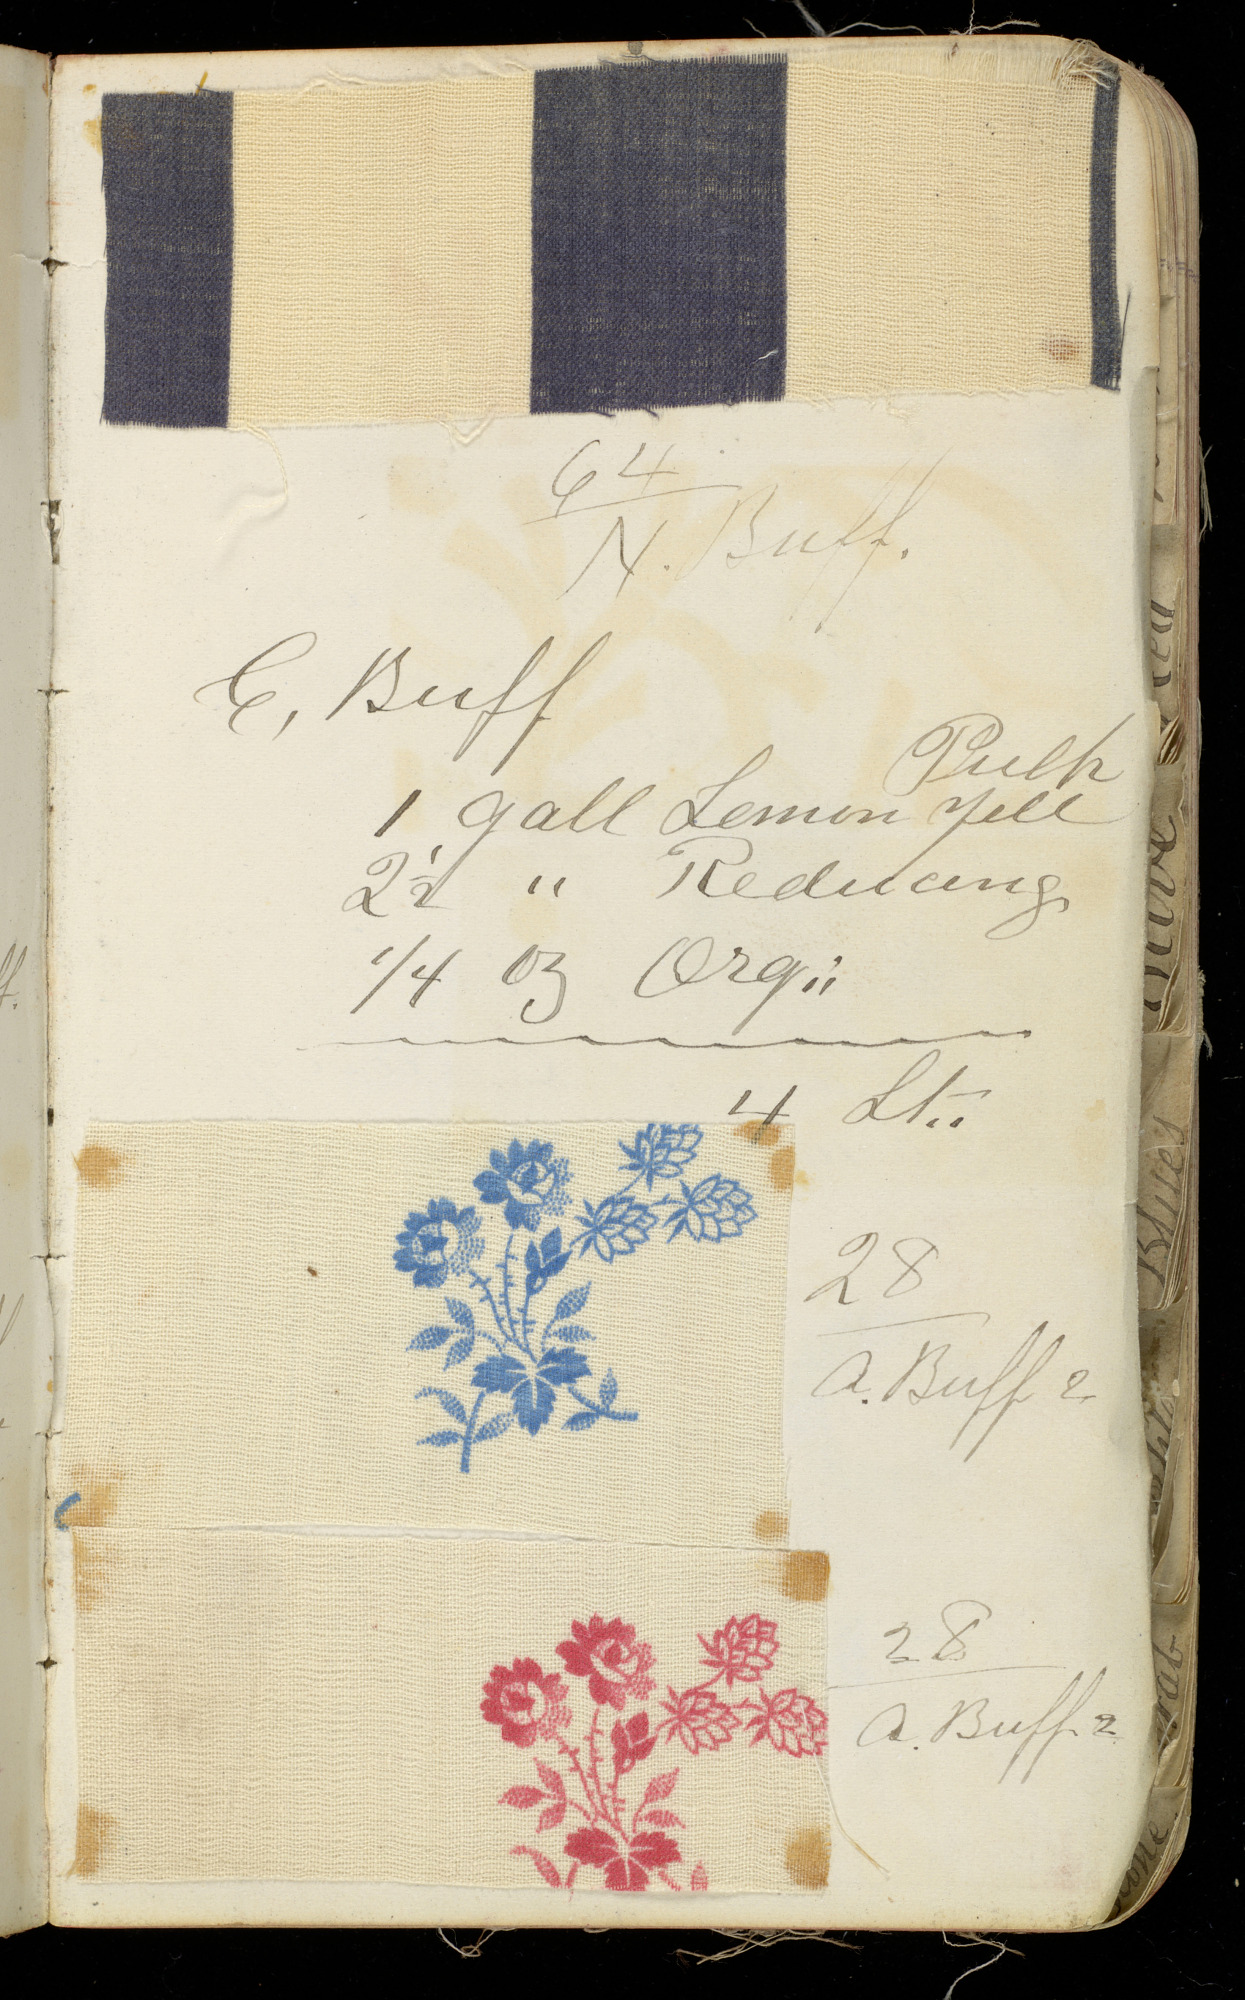 64
N. Buff.
C, Buff
Pulp
1 gall Lemon Yell
2½ " Reducing
1/4 oz Org"
4 Lt"
28
a. Buff 2
28
a. Buff 2
Blues